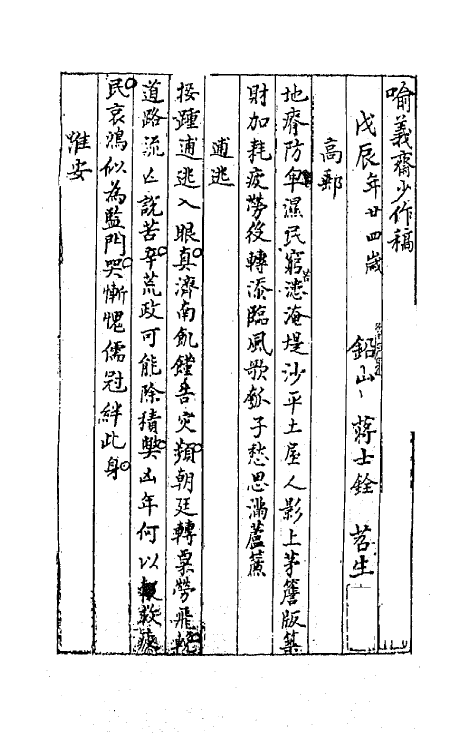 喻義齋少作稿
戊辰年廿四歲 鉛山 蔣士銓 苕生
高郵
地瘠防卑濕民窮苦淹堤沙平土屋人影上茅簷版築
財加耗疲勞役轉添臨風歌瓠子愁思滿蘆簾
逋逃
接踵逋逃入眼真濟南飢饉告灾頻朝廷轉粟勞飛輓
道路流亡説苦辛荒政可能除積弊凶年何以救疲
民哀鴻似為監門哭慚愧儒冠絆此身
淮安